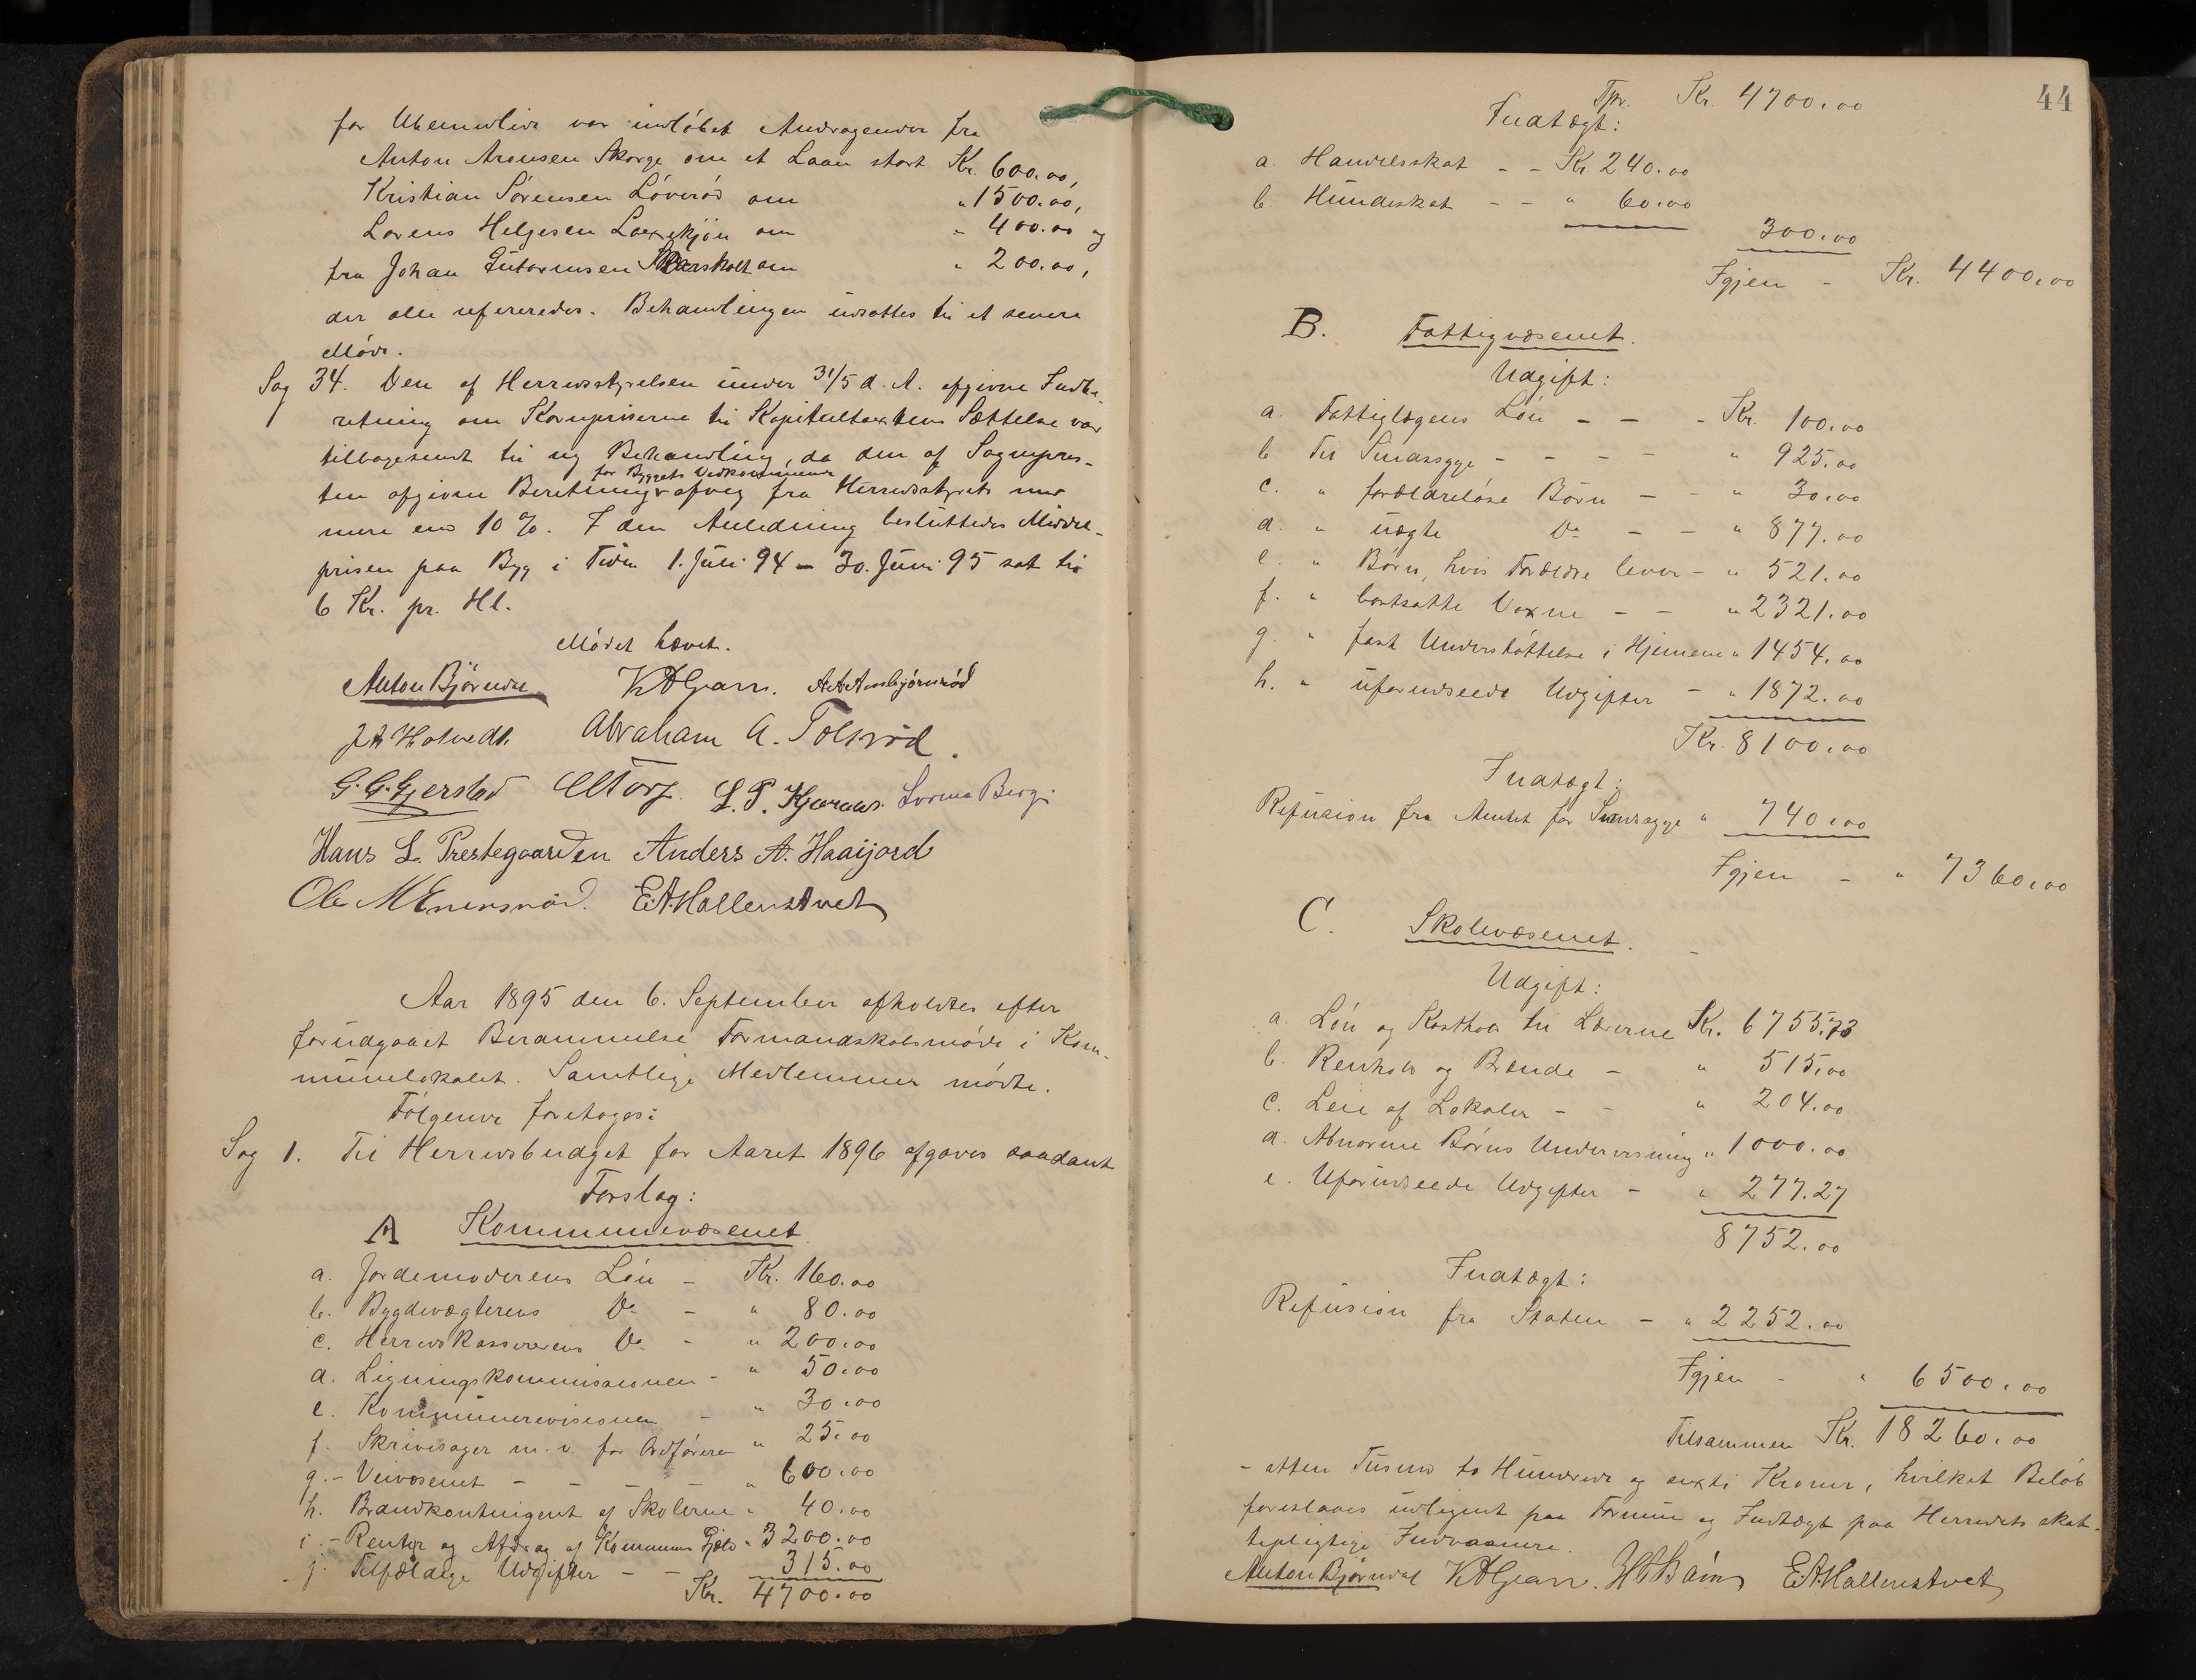 for Ubemedlede var indløbet Andragender fra
Anton Aronsen Skorge om et Laan stort Kr. 600.00,
Kristian Sørensen Løverød om " 1500.00,
Lorens Helgesen om " 400.00 og
fra Johan Gutormsen om " 200.00,
der alle refereredes. Behandlingen udsattes til et senere
Møde.
Sag 34. Den af Herredsstyrelsen under 31/5 d. A. afgivne Indbe-
retning om Kornpriserne til Kapitaltaxtens Sættelse var
tilbagesendt til ny Behandling, da den af Sognepres-
for Byggets Vedkommende
ten afgivne Beretning afveg fra Herredsstyrets med
mere end 10 %. I den Anledning besluttedes Middel-
prisen paa Byg i Tiden 1. Juli 94 – 30. Juni 95 sat til
6 Kr. pr. Hl.
Mødet hævet.
Anton Bjørndal KAGran. A A Asbjørnrød
J A Hotvedt. Abraham A. Tolsrød.
G. G. Gjerstad L. P. Kjæraas. Lorens Berg.
Hans L. Prestegaarden Anders A. Haaijord
Ole M E.A.Hallenstvet
Aar 1895 den 6. September afholdtes efter
forudgaaet Berammelse Formandskabsmøde i Kom-
munelokalet. Samtlige Medlemmer mødte.
Følgende foretoges:
Sag 1. Til Herredsbudget for Aaret 1896 afgaves saadant
Forslag:
A Kommunevæsenet.
a. Jordemoderens Løn – Kr. 160.00
b. Bygdevægterens Do – " 80.00
c. Herredskassererens Do – " 200.00
d. Ligningskommissionen – " 50.00
e. Kommunerevisionen – " 30.00
f. Skrivesager m. v. for Ordføreren " 25.00
g. – Veivæsenet – – – – " 600.00
h. Brandkontingent af Skolerne " 40.00
i. – Renter og Afdrag af Kommunens Gjæld " 3200.00
j. Tilfældige Udgifter – – 315.00
Kr. 4700.00
44
Tpr. Kr. 4700.00
Indtægt:
a. Handelsskat – – Kr 240.00
b. Hundeskat – – " 60.00
300.00
Igjen – Kr. 4400.00
B. Fattigvæsenet.
Udgift:
a. Fattiglægens Løn – – – Kr. 100.00
b. Til Sindssyge – – – – " 925.00
c. " forældreløse Børn – – " 30.00
d. " uægte Do – – " 877.00
e. " Børn, hvis Forældre lever – " 521.00
f. " bortsatte Voxne – – " 2321.00
g. " fast Understøttelse i Hjemmene " 1454.00
h. " uforudseede Udgifter – " 1872.00
Kr. 8100.00
Indtægt:
Refusion fra Amtet for Sindssyge " 740.00
Igjen – " 7360.00
C. Skolevæsenet.
Udgift:
a. Løn og Kosthold til Lærerne Kr. 6755.73
b. Renhold og Brænde – " 515.00
c. Leie af Lokaler – – " 204.00
d. Abnorme Børns Undervisning " 1000.00
e. Uforudseede Udgifter – " 277.27
8752.00
Indtægt:
Refusion fra Staten – " 2252.00
Igjen – " 6500.00
Tilsammen Kr. 18260.00
– atten Tusind to Hundrede og sexti Kroner, hvilket Beløb
foreslaaes udlignet paa Formue og Indtægt paa Herredets skat-
tepligtige Indvaanere.
Anton Bjørndal KAGran. E.A.Hallenstvet